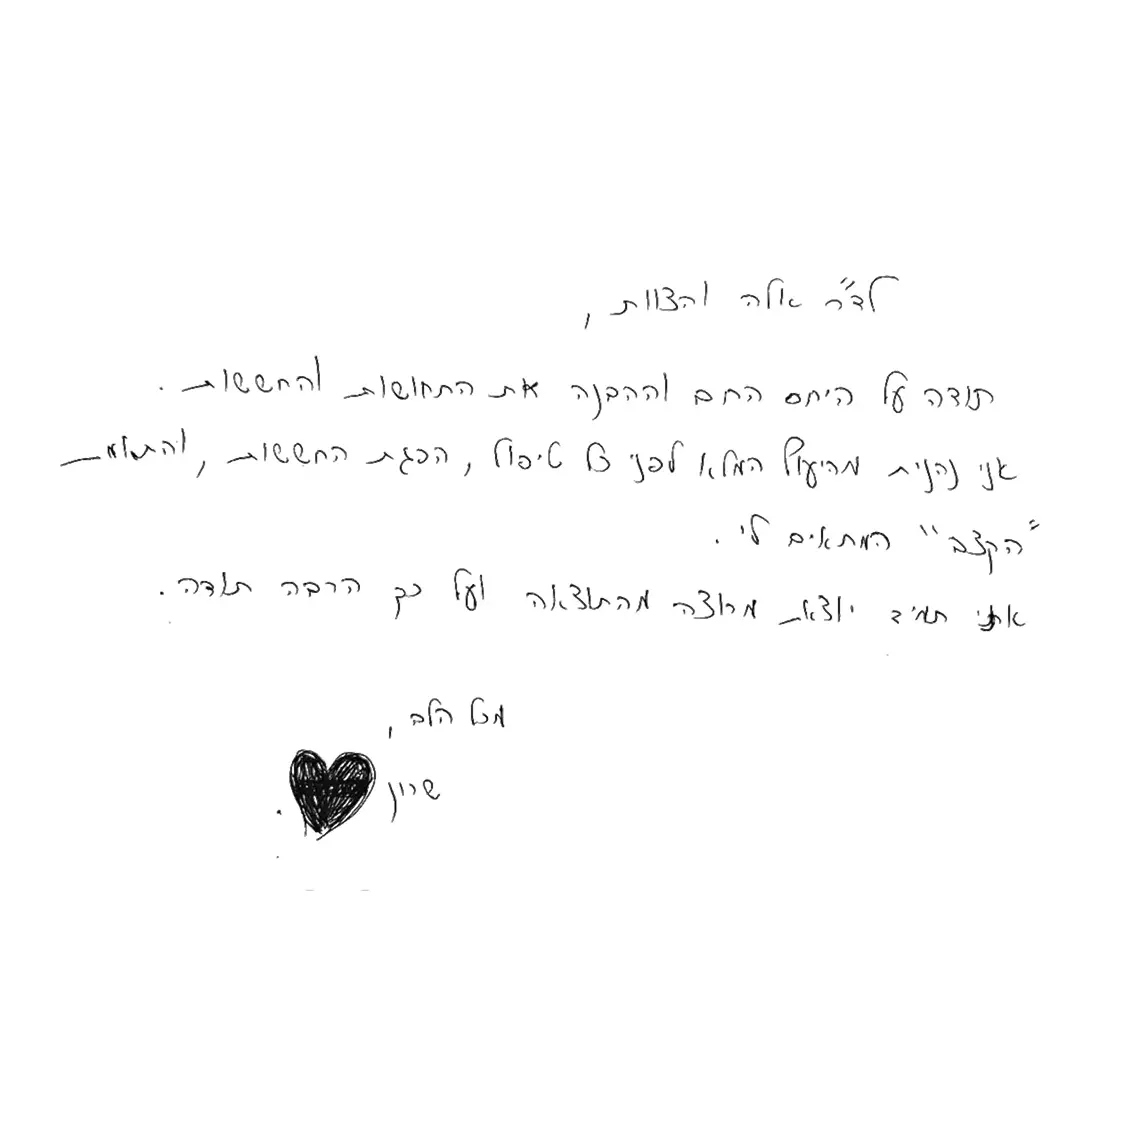 לד״ר אלה והצוות,
תודה על היחס החם וההבנה את התחושות והחששות.
אני נהנית מהיעוץ המלא לפני כל טיפול, הפגת החששות, והתאמת
"הקצב" המתאים לי.
אני תמיד יוצאת מרוצה מהתוצאה ועל כך הרבה תודה.
מכל הלב,
שרון